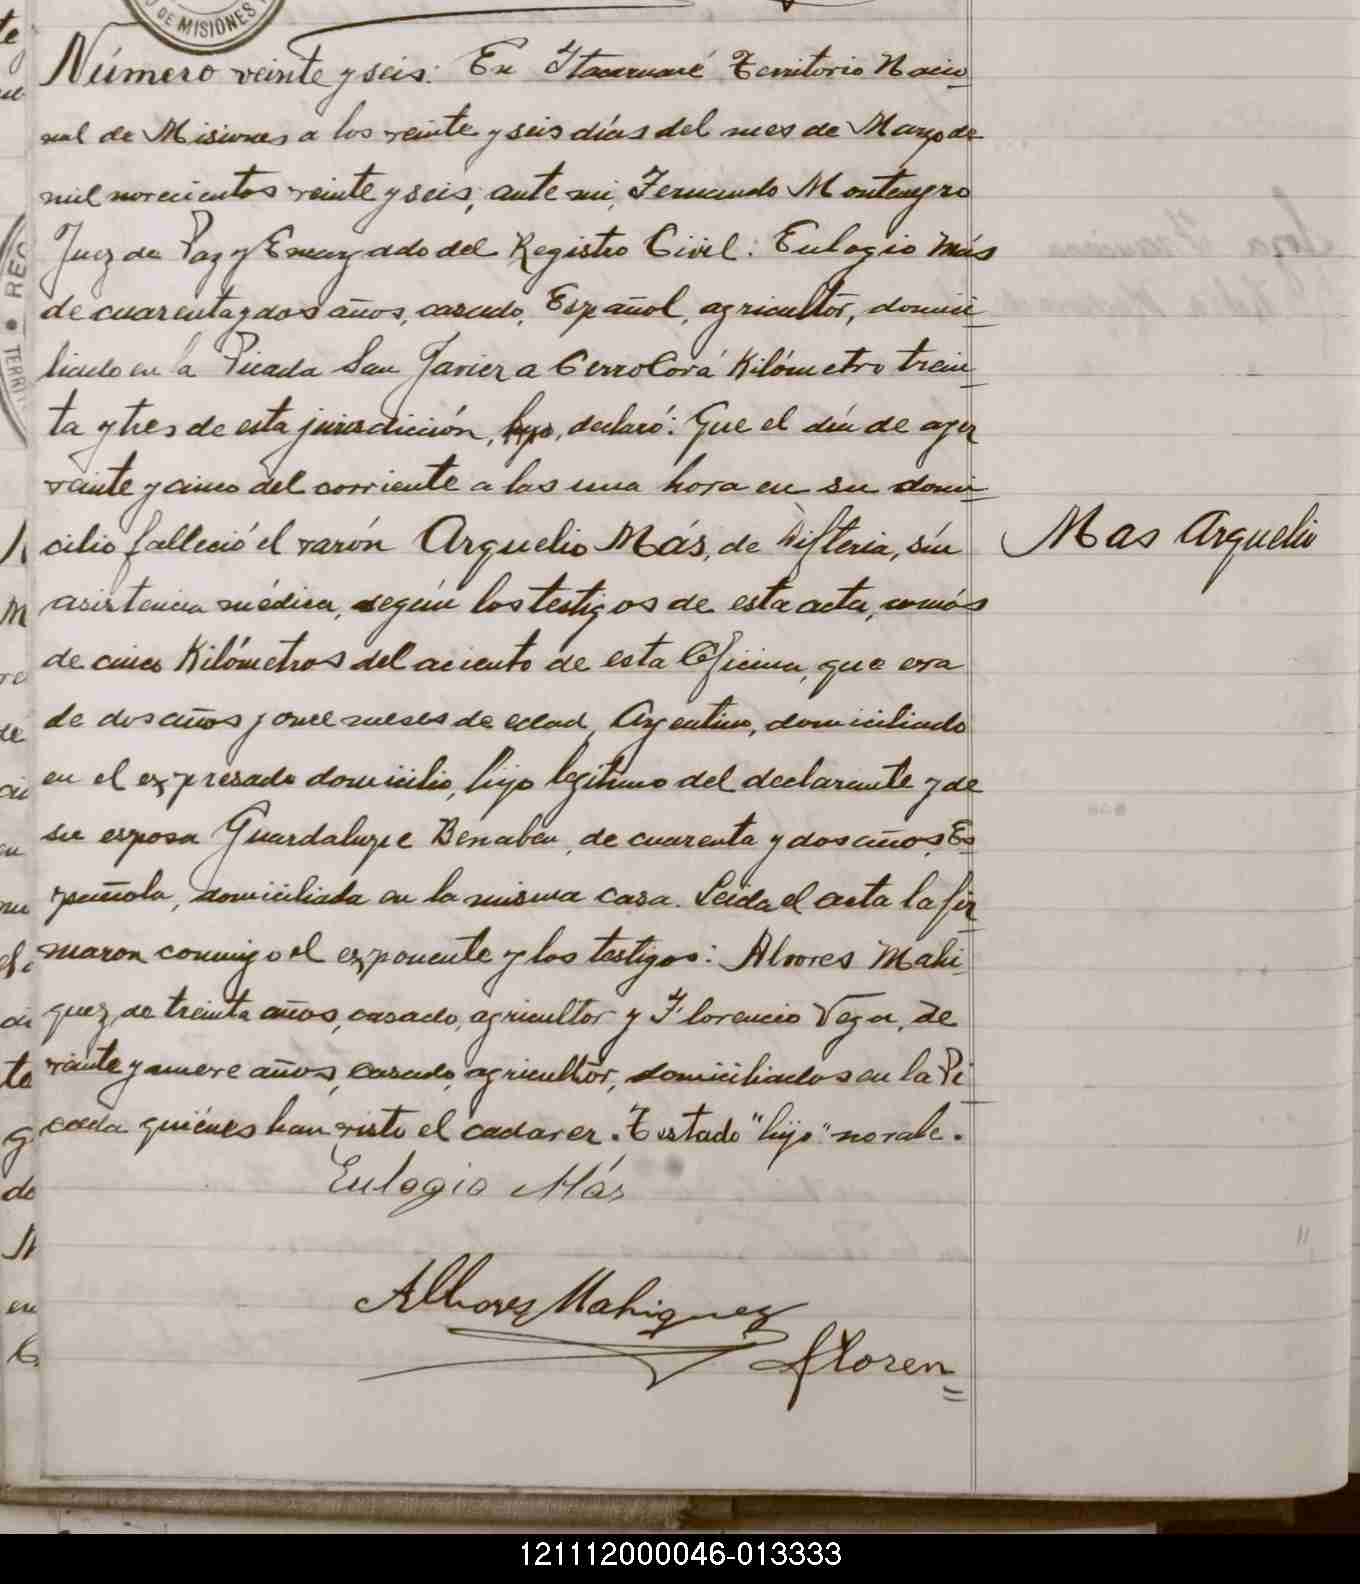 O DE MISIONES
Número veinte y seis: En Itacaruaré Territorio Nacio
nal de Misiones a los veinte y seis días del mes de Marzo de
mil novecientos veinte y seis, ante mi, Fernando Montenegro
Juez de Paz y Encargado del Registro Civil: Eulogio Más
de cuarenta y dos años, casado, Español, agricultor, domici
liado en la Picada San Javier a Cerro Corá Kilómetro trein
ta y tres de esta jurisdicción, hijo, declaró: Que el día de ayer
veinte y cinco del corriente a las una hora en su domi
cilio falleció el varón Arguelio Más, de Difteria, sin
asistencia médica, según los testigos de esta acta, a más
de cinco Kilómetros del aciento de esta Oficina, que era
de dos años y once meses de edad, Argentino, domiciliado
en el expresado domicilio, hijo legítimo del declarante y de
su esposa Guardalupe Benabeu, de cuarenta y dos años, Es
pañola, domiciliada en la misma casa. Leida el acta la fir
maron conmigo el exponente y los testigos: Alvores Mahi
quez, de treinta años, casado, agricultor y Florencio Vega, de
veinte y nueve años, casado, agricultor, domiciliados en la Pi
cada quiénes han visto el cadaver. Testado "hijo" no vale.
Mas Arguelio
Eulogio Más
Alvores Mahiquez
Floren
REG
TERRI
121112000046-013333